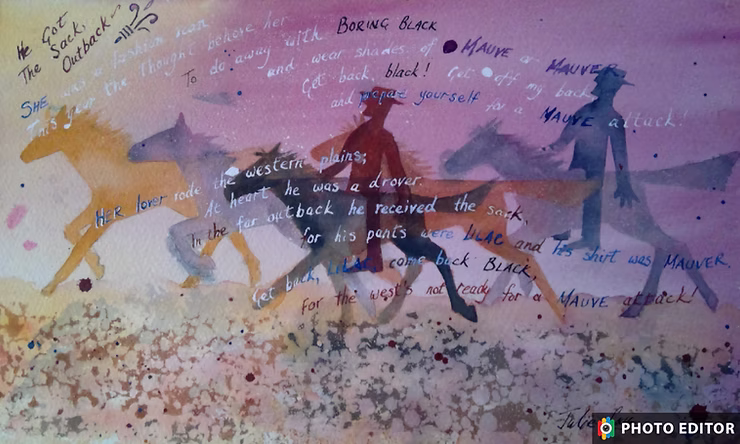 He Got
The Sack,
Outback~
SHE was a fashion
This year the thought behove her
To do away with BORING BLACK
and wear shades of MAUVE or MAUVER
Get back, black! Get off my back
and prepare yourself for a MAUVE attack!
HER lover rode the western plains;
At heart he was a drover.
In the far outback he received the sack,
for his pants were LILAC and his shirt was MAUVER
Get back, LILAC, come back BLACK,
For the west's not ready for a MAUVE attack!
PHOTO EDITOR